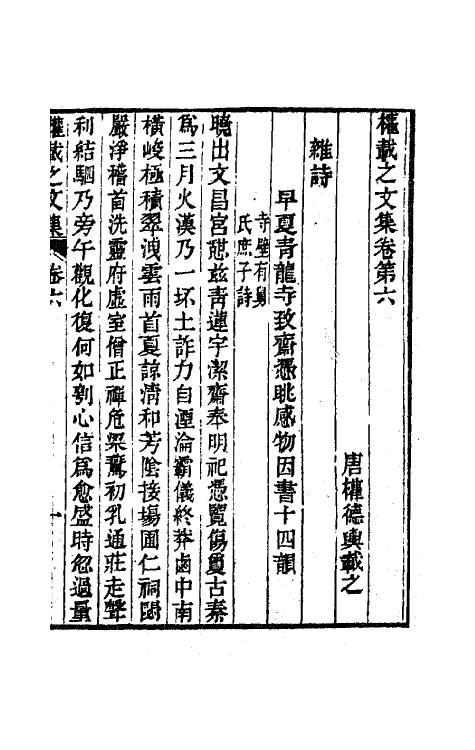 權載之文集卷第六
唐權德輿載之
雜詩
早夏青龍寺致齋憑眺感物因書十四韻
寺壁有舅
氏庶子詩
曉出文昌宮憩茲青蓮宇潔齋奉明祀憑覽傷敻古秦
為三月火漢乃一坏土詐力自湮淪霸儀終莽鹵中南
橫峻極積翠洩雲雨首夏諒淸和芳陰接場圃仁祠閟
嚴淨稽首洗靈府虛室僧正禪危梁鷰初乳通莊走聲
利結駟乃旁午觀化復何如刳心信為愈盛時忽過量
權載之文集 卷六 一